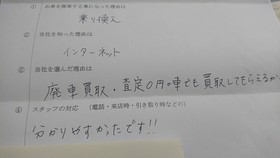 ① お車を廃車する事になった理由は
乗り換え
② 当社を知った理由は
インターネット
③ 当社を選んだ理由は
廃車買取・査定0円の車でも買取してもらえるから
④ スタッフの対応 (電話・来店時・引き取り時などに)
分かりやすかったです!!